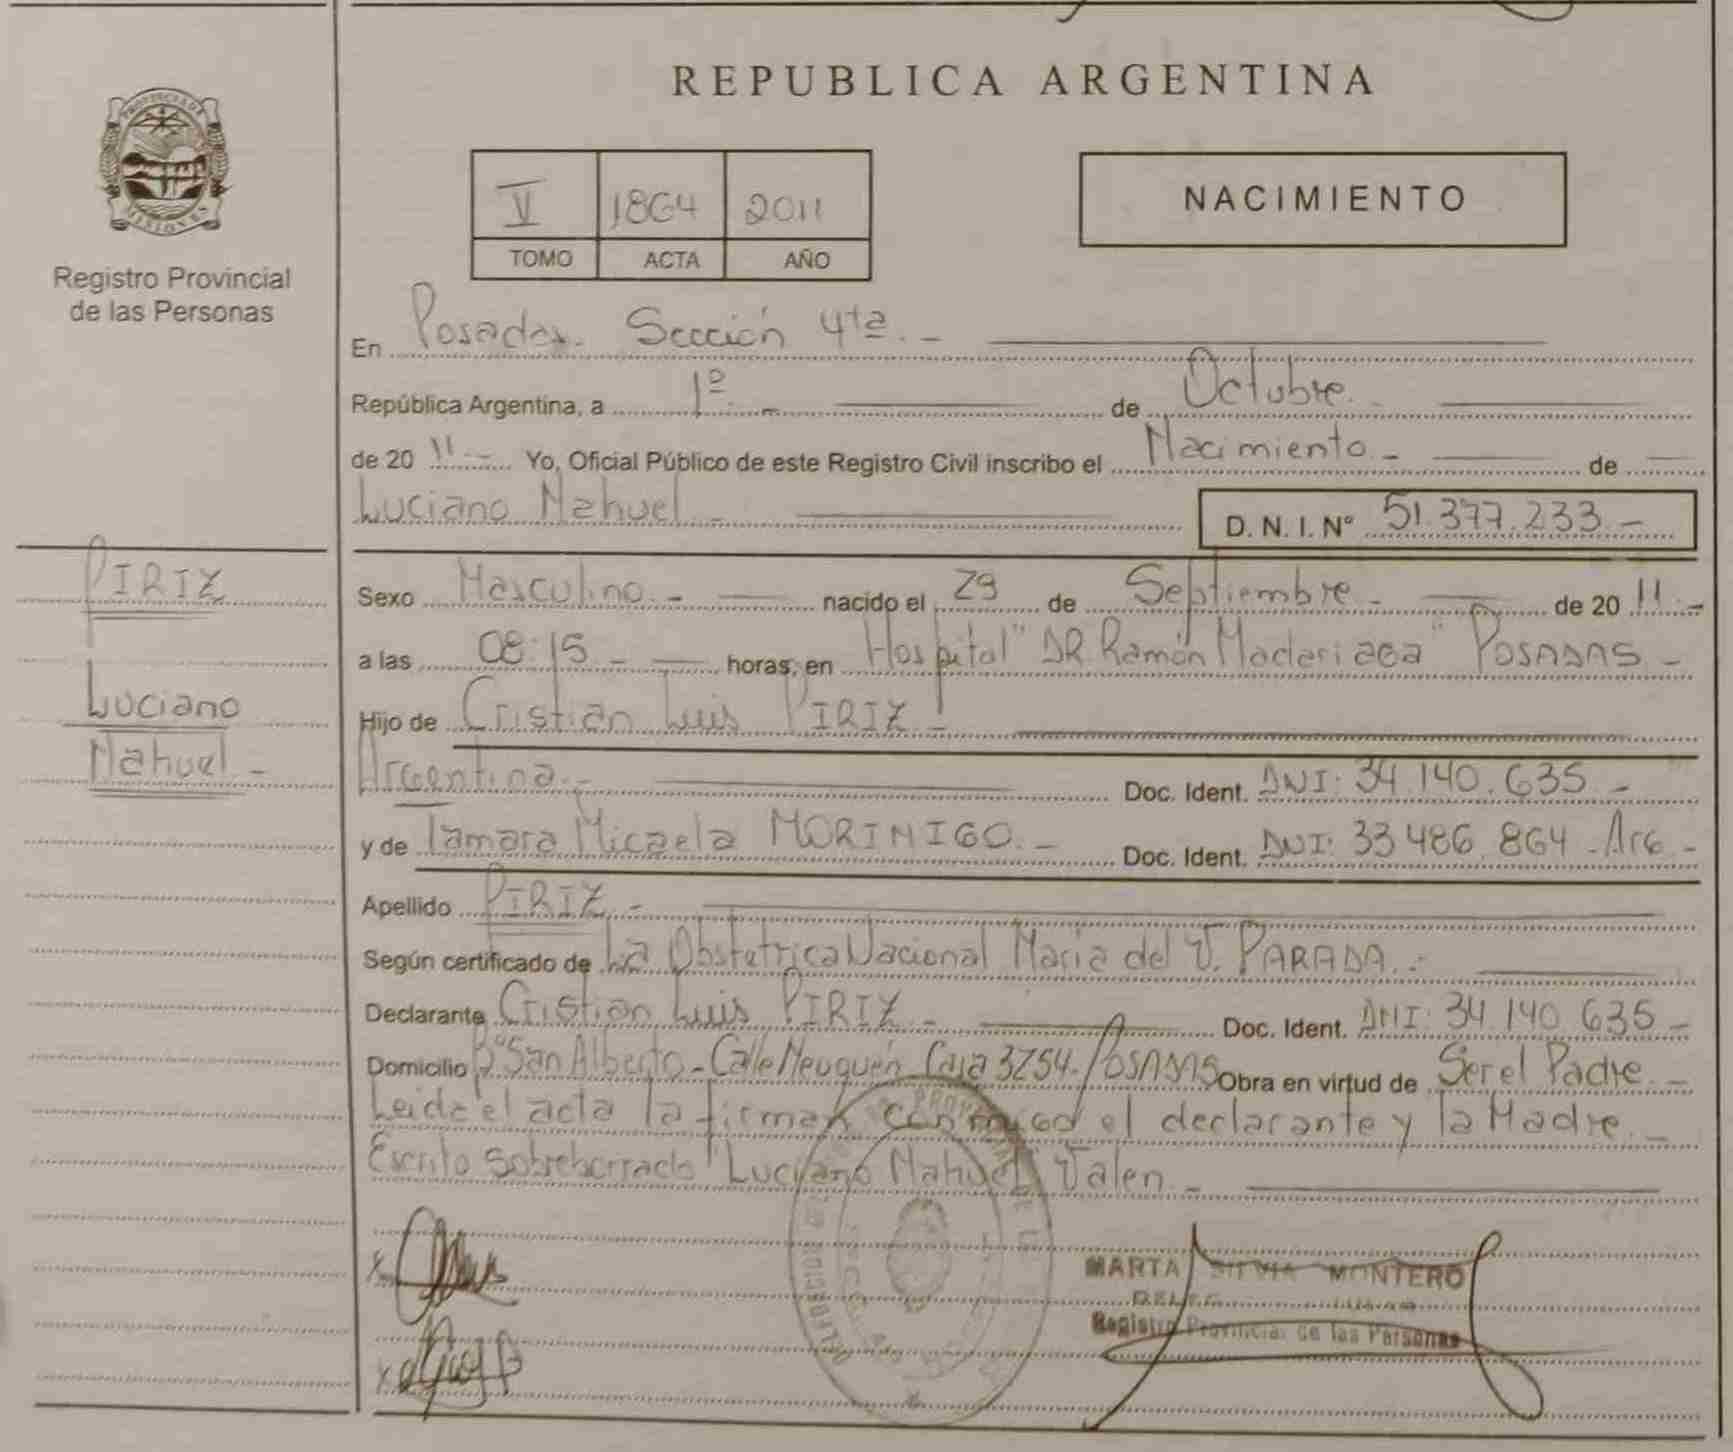 REPUBLICA ARGENTINA
PROVINCIA DE
MISIONES
Registro Provincial
de las Personas
V 1864 2011
TOMO ACTA AÑO
NACIMIENTO
En Posadas. Sección 4ta. -
República Argentina, a 1º. - de Octubre. -
de 20 11. - Yo, Oficial Público de este Registro Civil inscribo el Nacimiento - de
Luciano Nahuel - D. N. I. Nº 51.377.233 -
PIRIZ
Luciano
Nahuel -
Sexo Masculino. - nacido el 29 de Septiembre - de 20 11. -
a las 08:15 - horas, en Hospital "DR. Ramón Madariaga" POSADAS -
Hijo de Cristian Luis PIRIZ -
Argentina. - Doc. Ident. DNI: 34.140.635 -
y de Tamara Micaela MORINIGO. - Doc. Ident. DNI: 33.486.864 - Arg -
Apellido PIRIZ. -
Según certificado de La Obstetrica Nacional Maria del V. PARADA. -
Declarante Cristian Luis PIRIZ - Doc. Ident. DNI: 34.140.635 -
Domicilio Bº San Alberto - Calle Neuquén Casa 3254 - POSADAS Obra en virtud de Ser el Padre. -
Leida el acta la firman conmigo el declarante y la Madre. -
Escrito sobreborrado "Luciano Nahuel" Valen -
MARTA SILVIA MONTERO
Registro Provincial de las Personas